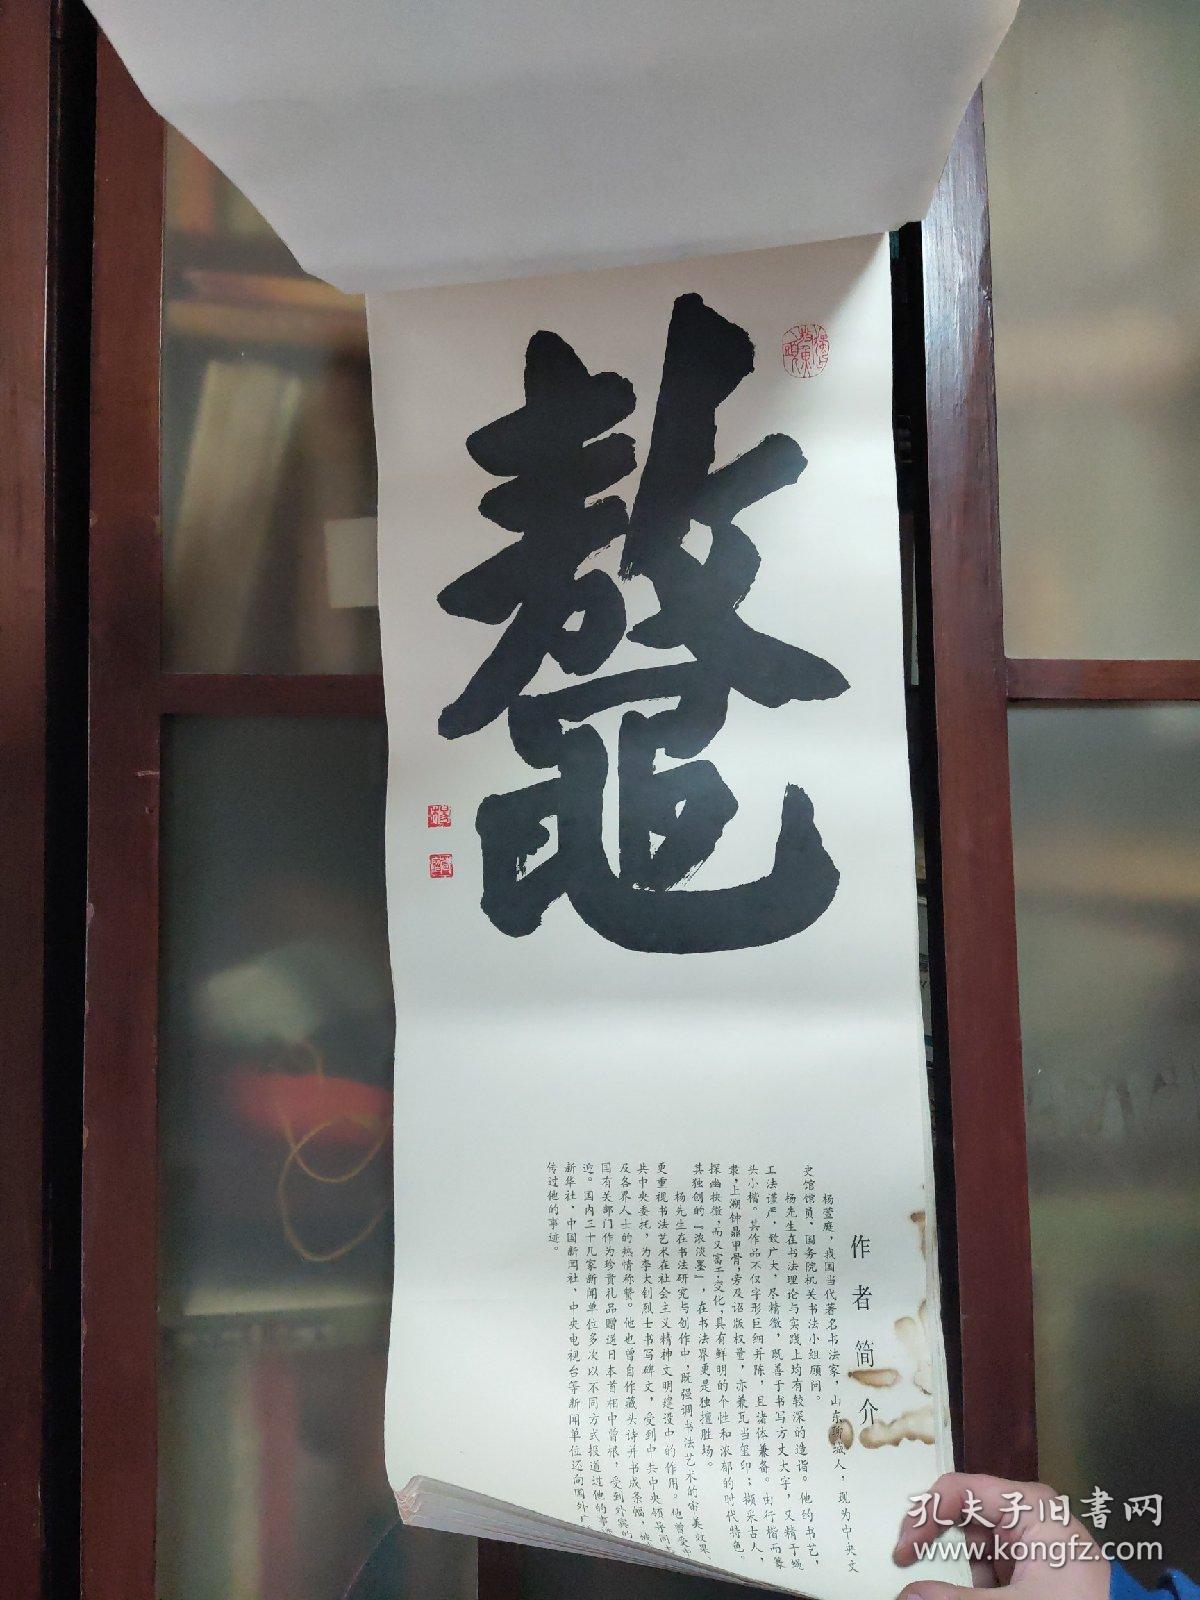 鼇
作者简介
杨萱庭，我国当代著名书法家，山东聊城人，现为中央文
史馆馆员，国务院机关书法小组顾问。
杨先生在书法理论与实践上均有较深的造诣。他的书艺，
工法谨严，致广大，尽精微，既善于书写方丈大字，又精于蝇
头小楷。其作品不仅字形巨细并陈，且诸体兼备。由行楷而篆
隶，上溯钟鼎甲骨，旁及诏版权量，亦兼瓦当玺印；撷采古人，
探幽抉微，而又富于变化，具有鲜明的个性和浓郁的时代特色。
其独创的『浓淡墨』，在书法界更是独擅胜场。
杨先生在书法研究与创作中，既强调书法艺术的审美效果，
更重视书法艺术在社会主义精神文明建设中的作用。他曾受中
共中央委托，为李大钊烈士书写碑文，受到中共中央领导同
及各界人士的热情称赞。他也曾自作藏头诗并书成条幅，被
国有关部门作为珍贵礼品赠送日本首相中曾根，受到外宾的
迎。国内三十几家新闻单位多次以不同方式报道过他的事
新华社，中国新闻社，中央电视台等新闻单位还向国外广
传过他的事迹。
孔夫子旧书网
www.kongfz.com